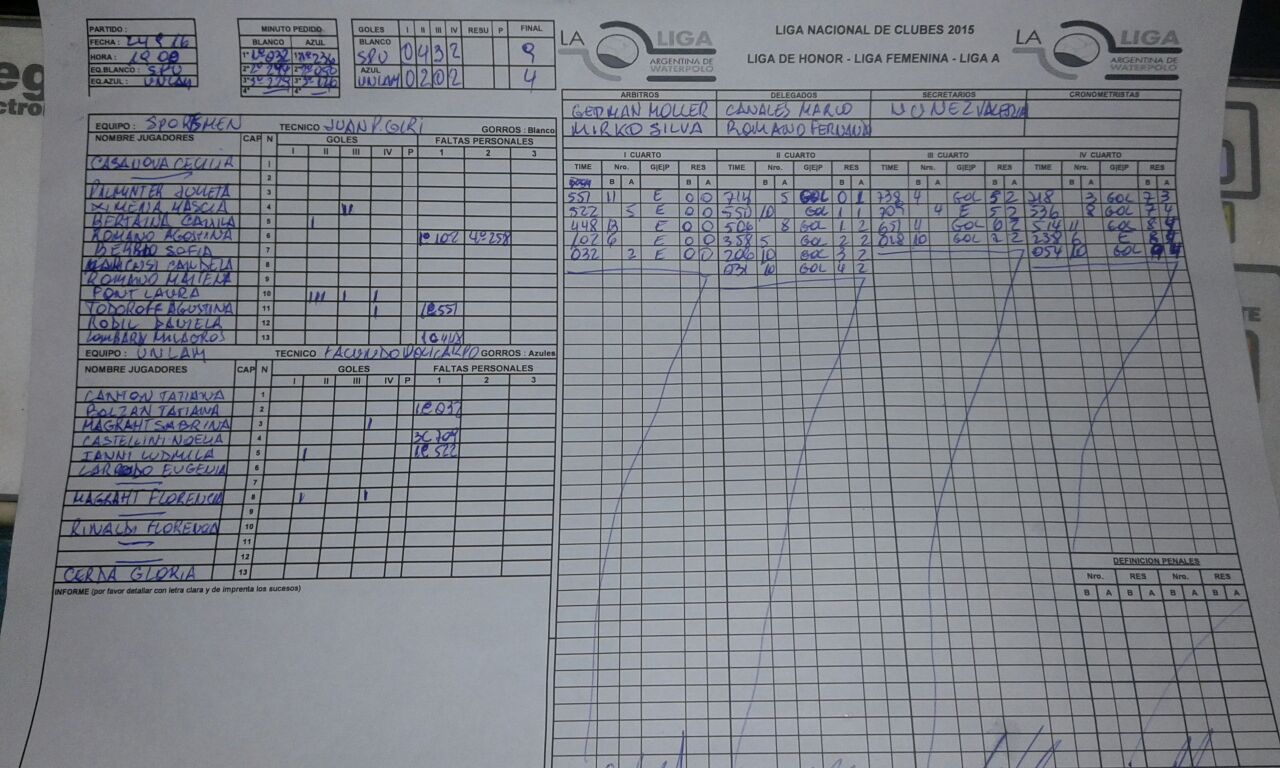 PARTIDO :
FECHA :
HORA :
EQ.BLANCO : SPO
EQ.AZUL : UNLAM
MINUTO PEDIDO
BLANCO AZUL
1°
2°
3°
4°
GOLES I II III IV RESU P FINAL
BLANCO
SPO 0 4 3 2 9
AZUL
UNLAM 0 2 0 2 4
LA LIGA
ARGENTINA DE
WATERPOLO
LIGA NACIONAL DE CLUBES 2015
LIGA DE HONOR - LIGA FEMENINA - LIGA A
LA LIGA
ARGENTINA DE
WATERPOLO
ARBITROS DELEGADOS SECRETARIOS CRONOMETRISTAS
GERMAN MOLLER CANALES MARCO NUNEZ VALERIA
MIRKO SILVA ROMANO
EQUIPO : SPORSMEN TECNICO JUAN P. GIRI GORROS : Blanco
NOMBRE JUGADORES CAP N GOLES FALTAS PERSONALES
I II III IV P 1 2 3
CASANOVA CECILIA 1
2
PALMINTER JULIETA 3
XIMENA MASCIA 4
BERTAINA CAMILA 5
ROMANO AGOSTINA 6 1°102 4°258
SOFIA 7
CANDELA 8
ROMANO 9
FONT LAURA 10
TODOROFF AGUSTINA 11 1C551
RODIL DANIELA 12
LOMBARDI MILAGROS 13 1C448
EQUIPO : UNLAM TECNICO FACUNDO POLICARPO GORROS : Azules
NOMBRE JUGADORES CAP N GOLES FALTAS PERSONALES
I II III IV P 1 2 3
TATIANA 1
BOLZAN TATIANA 2 1C032
MAGRAHT SABRINA 3
CASTELLINI NOELIA 4 3C709
IANNI LUDMILA 5 1C522
EUGENIA 6
7
MAGRAHT FLORENCIA 8
9
RINALDI FLORENCIA 10
11
12
CERDA GLORIA 13
INFORME (por favor detallar con letra clara y de imprenta los sucesos)
I CUARTO II CUARTO III CUARTO IV CUARTO
TIME Nro. G|E|P RES TIME Nro. G|E|P RES TIME Nro. G|E|P RES TIME Nro. G|E|P RES
B A B A B A B A B A B A B A B A
551 11 E 0 0 714 5 GOL 0 1 739 4 GOL 5 2 718 3 GOL 7 3
522 5 E 0 0 550 10 GOL 1 1 709 4 E 5 2 536 8 GOL 7 4
448 13 E 0 0 506 8 GOL 1 2 651 4 GOL 6 2 514 11 GOL 8 4
102 6 E 0 0 358 5 GOL 2 2 028 10 GOL 2 238 6 E 8 4
032 2 E 0 0 206 10 GOL 3 2 054 10 GOL 9 4
031 10 GOL 4 2
DEFINICION PENALES
Nro. RES Nro. RES
B A B A B A B A